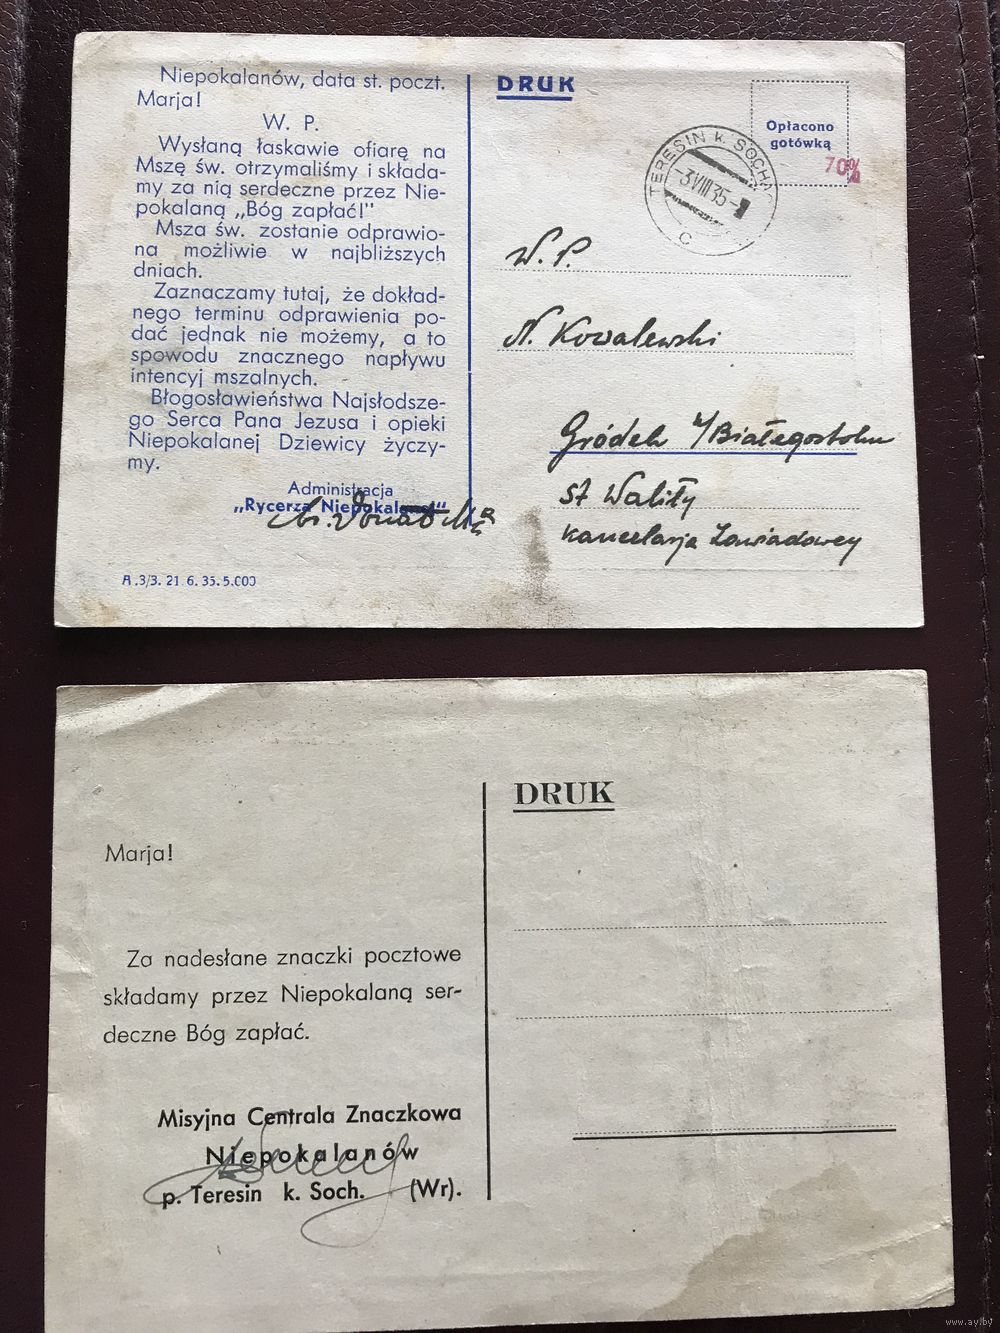 Niepokalanów, data st. poczt.
Marja!
W. P.
Wysłaną łaskawie ofiarę na
Mszę św. otrzymaliśmy i składa-
my za nią serdeczne przez Nie-
pokalaną „Bóg zapłać!"
Msza św. zostanie odprawio-
na możliwie w najbliższych
dniach.
Zaznaczamy tutaj, że dokład-
nego terminu odprawienia po-
dać jednak nie możemy, a to
spowodu znacznego napływu
intencyj mszalnych.
Błogosławieństwa Najsłodsze-
go Serca Pana Jezusa i opieki
Niepokalanej Dziewicy życzy-
my.
Administracja
„Rycerza Niepokalanej"
A.3/3. 21 6. 35. 5.000
DRUK
Opłacono
gotówką
70%
TERESIN K. SOCHA
-3 VIII 35-
C
W. P.
N. Kowalewski
Gródek k/Białegostoku
st Waliły
Kancelarja Zawiadowcy
DRUK
Marja!
Za nadesłane znaczki pocztowe
składamy przez Niepokalaną ser-
deczne Bóg zapłać.
Misyjna Centrala Znaczkowa
Niepokalanów
p. Teresin k. Soch. (Wr).
www.ay.by